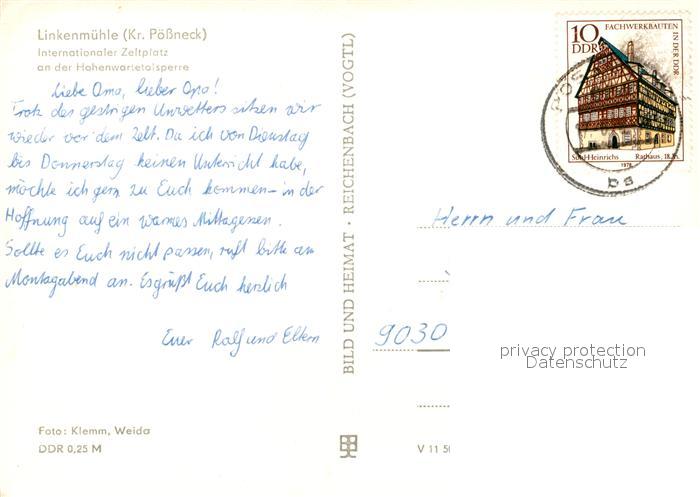 Linkenmühle (Kr. Pößneck)
Internationaler Zeltplatz
an der Hohenwartetalsperre
Liebe Oma, lieber Opa!
Trotz des gestrigen Unwetters sitzen wir
wieder vor dem Zelt. Da ich von Dienstag
bis Donnerstag keinen Unterricht habe,
möchte ich gern zu Euch kommen – in der
Hoffnung auf ein warmes Mittagessen.
Sollte es Euch nicht passen, ruft bitte am
Montagabend an. Es grüßt Euch herzlich
Euer Ralf und Eltern
Foto: Klemm, Weida
DDR 0,25 M
BILD UND HEIMAT · REICHENBACH (VOGTL)
V 11 50
10
DDR
FACHWERKBAUTEN
IN DER DDR
Suhl-Heinrichs Rathaus, 18.Jh.
1978
bs
Herrn und Frau
9030
privacy protection
Datenschutz